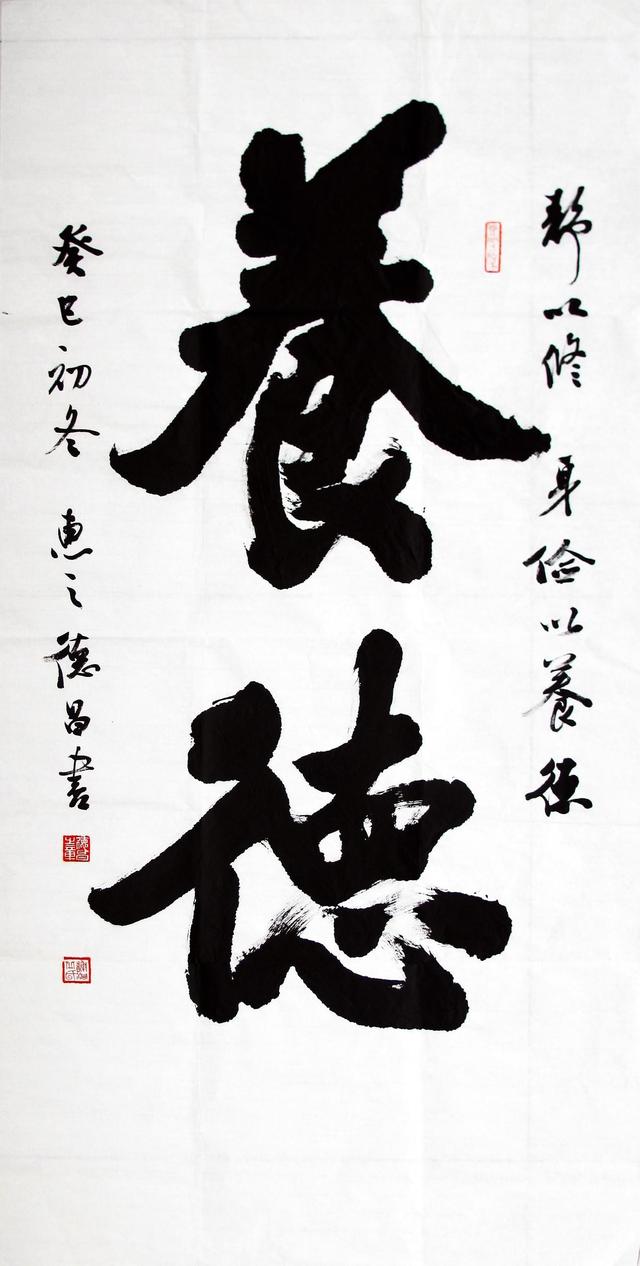 靜以修身儉以養德
養德
癸巳初冬惠之德昌書